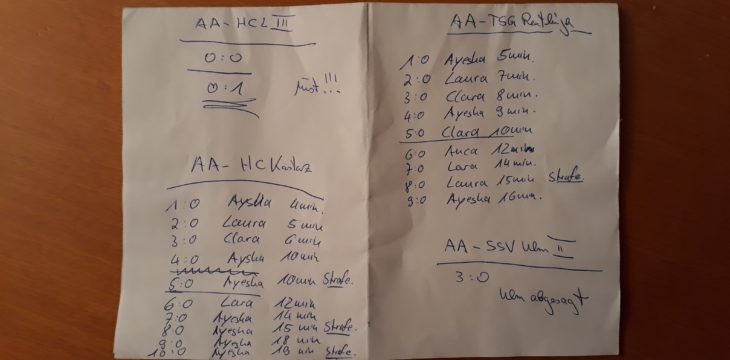 AA - HCL III
0:0
0:1
Mist!!!
AA - HC Konstanz
1:0 Aysha 4min.
2:0 Laura 5min
3:0 Clara 6min
4:0 Aysha 10min
5:0 Ayesha 10min Strafe.
6:0 Lara 12min
7:0 Ayesha 14min
8:0 Ayesha 15min Strafe.
9:0 Ayesha 18min
10:0 Ayesha 19min Strafe.
AA - TSG Reutlingen
1:0 Ayesha 5min.
2:0 Laura 7min.
3:0 Clara 8min.
4:0 Ayesha 9min.
5:0 Clara 10min
6:0 Anca 12min
7:0 Lara 14min.
8:0 Laura 15min Strafe.
9:0 Ayesha 16min.
AA - SSV Ulm II
3:0
Ulm abgesagt